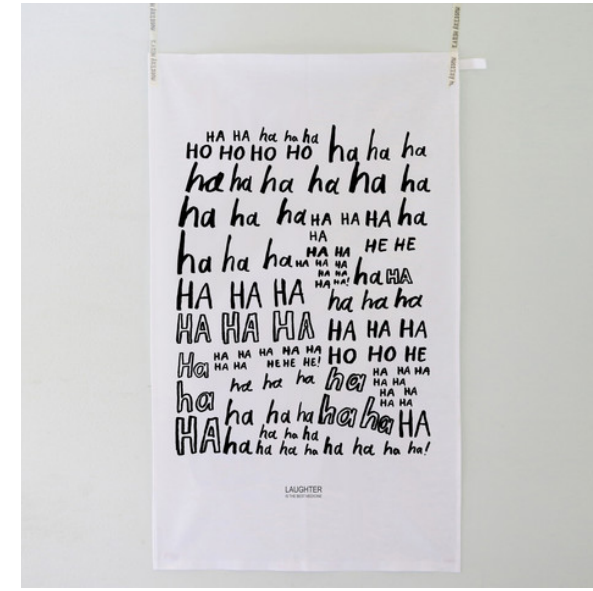 HA HA ha ha ha
HO HO HO HO ha ha ha
ha ha ha ha ha ha
ha ha ha HA HA HA ha
HA
HA HA HE HE
ha ha ha HA HA HA
HA HA
HA HA! ha HA
HA HA HA ha ha ha
HA HA HA HA HA HA
Ha HA HA HA HA HA HO HO HE
HA HA HE HE HE!
ha ha ha ha HA HA HA
HA HA
ha HA HA
HA HA
ha ha ha ha ha HA
HA ha ha ha
ha ha ha ha ha ha ha ha!
LAUGHTER
IS THE BEST MEDICINE